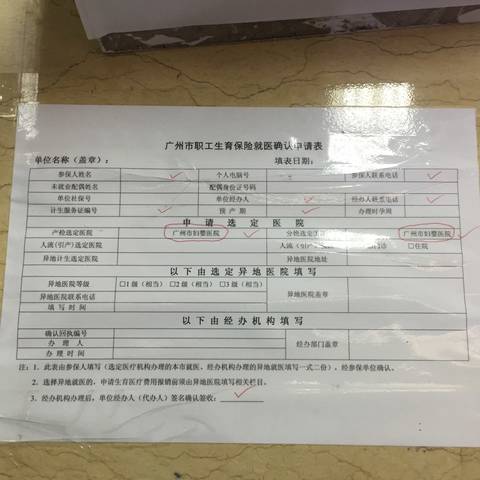 广州市职工生育保险就医确认申请表
单位名称（盖章）： 填表日期：
参保人姓名 个人电脑号 参保人联系电话
未就业配偶姓名 配偶身份证号码
单位社保号 单位经办人 经办人联系电话
计生服务证编号 预产期 办理时孕周
申请选定医院
产检选定医院 广州市妇婴医院 分娩选定医院 广州市妇婴医院
人流(引产)选定医院 人流(引产) 住院
异地计生选定医院 异地医院地址
以下由选定异地医院填写
异地医院等级 □1级（相当） □2级（相当） □3级（相当） 异地医院盖章
异地医院联系电话
填写时间
以下由经办机构填写
确认回执编号 经办部门盖章
办理人
办理时间
注：1、此表由参保人填写（选定医疗机构办理的本市就医、经办机构办理的异地就医填写一式二份），经参保单位确认。
2、选择异地就医的，申请生育医疗费用报销前须由异地医院填写相关栏目。
3、经办机构办理后，单位经办人（代办人）签名确认签收：